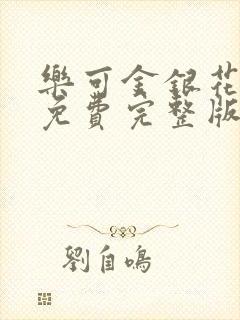 樂可金銀花
免費完整版
劉自鳴